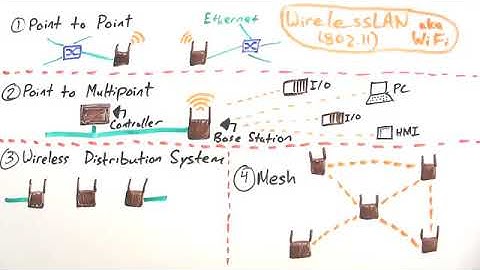 ① Point to Point
Ethernet
WirelessLAN aka
(802.11) WiFi
② Point to Multipoint
Controller
Base Station
I/O
PC
I/O
HMI
③ Wireless Distribution System
④ Mesh